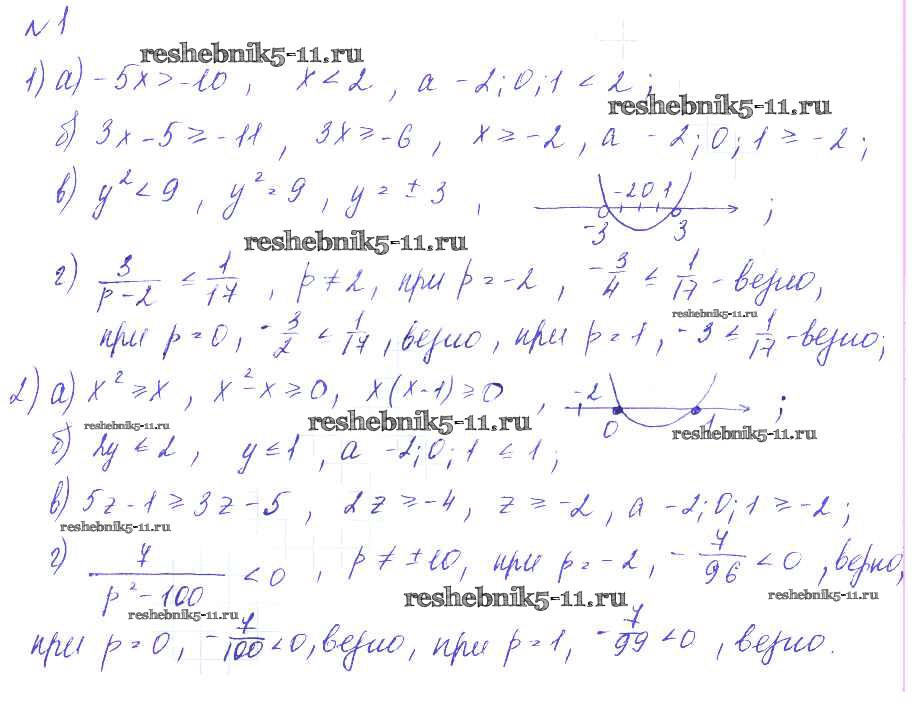 №1
reshebnik5-11.ru
1) а) -5x > -10, x < 2, а -2; 0; 1 < 2;
reshebnik5-11.ru
б) 3x - 5 ≥ -11, 3x ≥ -6, x ≥ -2, а -2; 0; 1 ≥ -2;
в) y² < 9, y² = 9, y = ±3, -2 0 1 -3 3;
reshebnik5-11.ru
г) 3/(p-2) ≤ 1/17, p ≠ 2, при p = -2, -3/4 ≤ 1/17 - верно,
reshebnik5-11.ru
при p = 0, -3/2 ≤ 1/17, верно, при p = 1, -3 ≤ 1/17 - верно;
2) а) x² ≥ x, x² - x ≥ 0, x(x-1) ≥ 0, -2 0 1;
reshebnik5-11.ru reshebnik5-11.ru reshebnik5-11.ru
б) 2y ≤ 2, y ≤ 1, а -2; 0; 1 ≤ 1;
в) 5z - 1 ≥ 3z - 5, 2z ≥ -4, z ≥ -2, а -2; 0; 1 ≥ -2;
reshebnik5-11.ru
г) 7/(p² - 100) < 0, p ≠ ±10, при p = -2, -7/96 < 0, верно,
reshebnik5-11.ru reshebnik5-11.ru reshebnik5-11.ru
при p = 0, -7/100 < 0, верно, при p = 1, -7/99 < 0, верно.